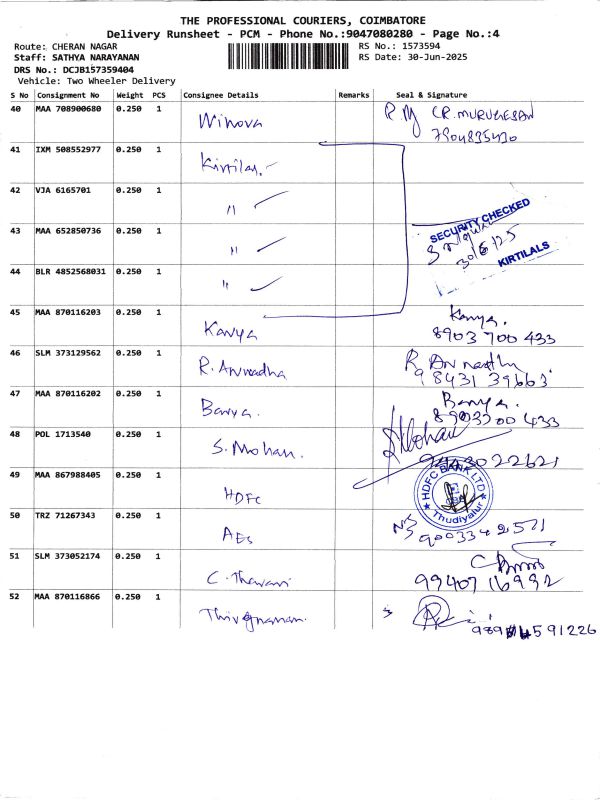 THE PROFESSIONAL COURIERS, COIMBATORE
Delivery Runsheet - PCM - Phone No.:9047080280 - Page No.:4
Route: CHERAN NAGAR RS No.: 1573594
Staff: SATHYA NARAYANAN RS Date: 30-Jun-2025
DRS No.: DCJB157359404
Vehicle: Two Wheeler Delivery
S No Consignment No Weight PCS Consignee Details Remarks Seal & Signature
40 MAA 708900680 0.250 1 Winova R.M (R.MURUGESAN
7904835430
41 IXM 508552977 0.250 1 Kirtilas
42 VJA 6165701 0.250 1 "
43 MAA 652850736 0.250 1 " SECURITY CHECKED
30/6/25
KIRTILALS
44 BLR 4852568031 0.250 1 "
45 MAA 870116203 0.250 1 Kavya Kavya.
8903700433
46 SLM 373129562 0.250 1 R. Anuradha R Anuradha
98431 39663
47 MAA 870116202 0.250 1 Banya. Banya.
8903700433
48 POL 1713540 0.250 1 S. Mohan. SMohan
9443022621
49 MAA 867988405 0.250 1 HDFC HDFC BANK LTD
Thudiyalur
50 TRZ 71267343 0.250 1 AES NS
9003342571
51 SLM 373052174 0.250 1 C. Thavani
9940716992
52 MAA 870116866 0.250 1 Thirugnanam.
4591226